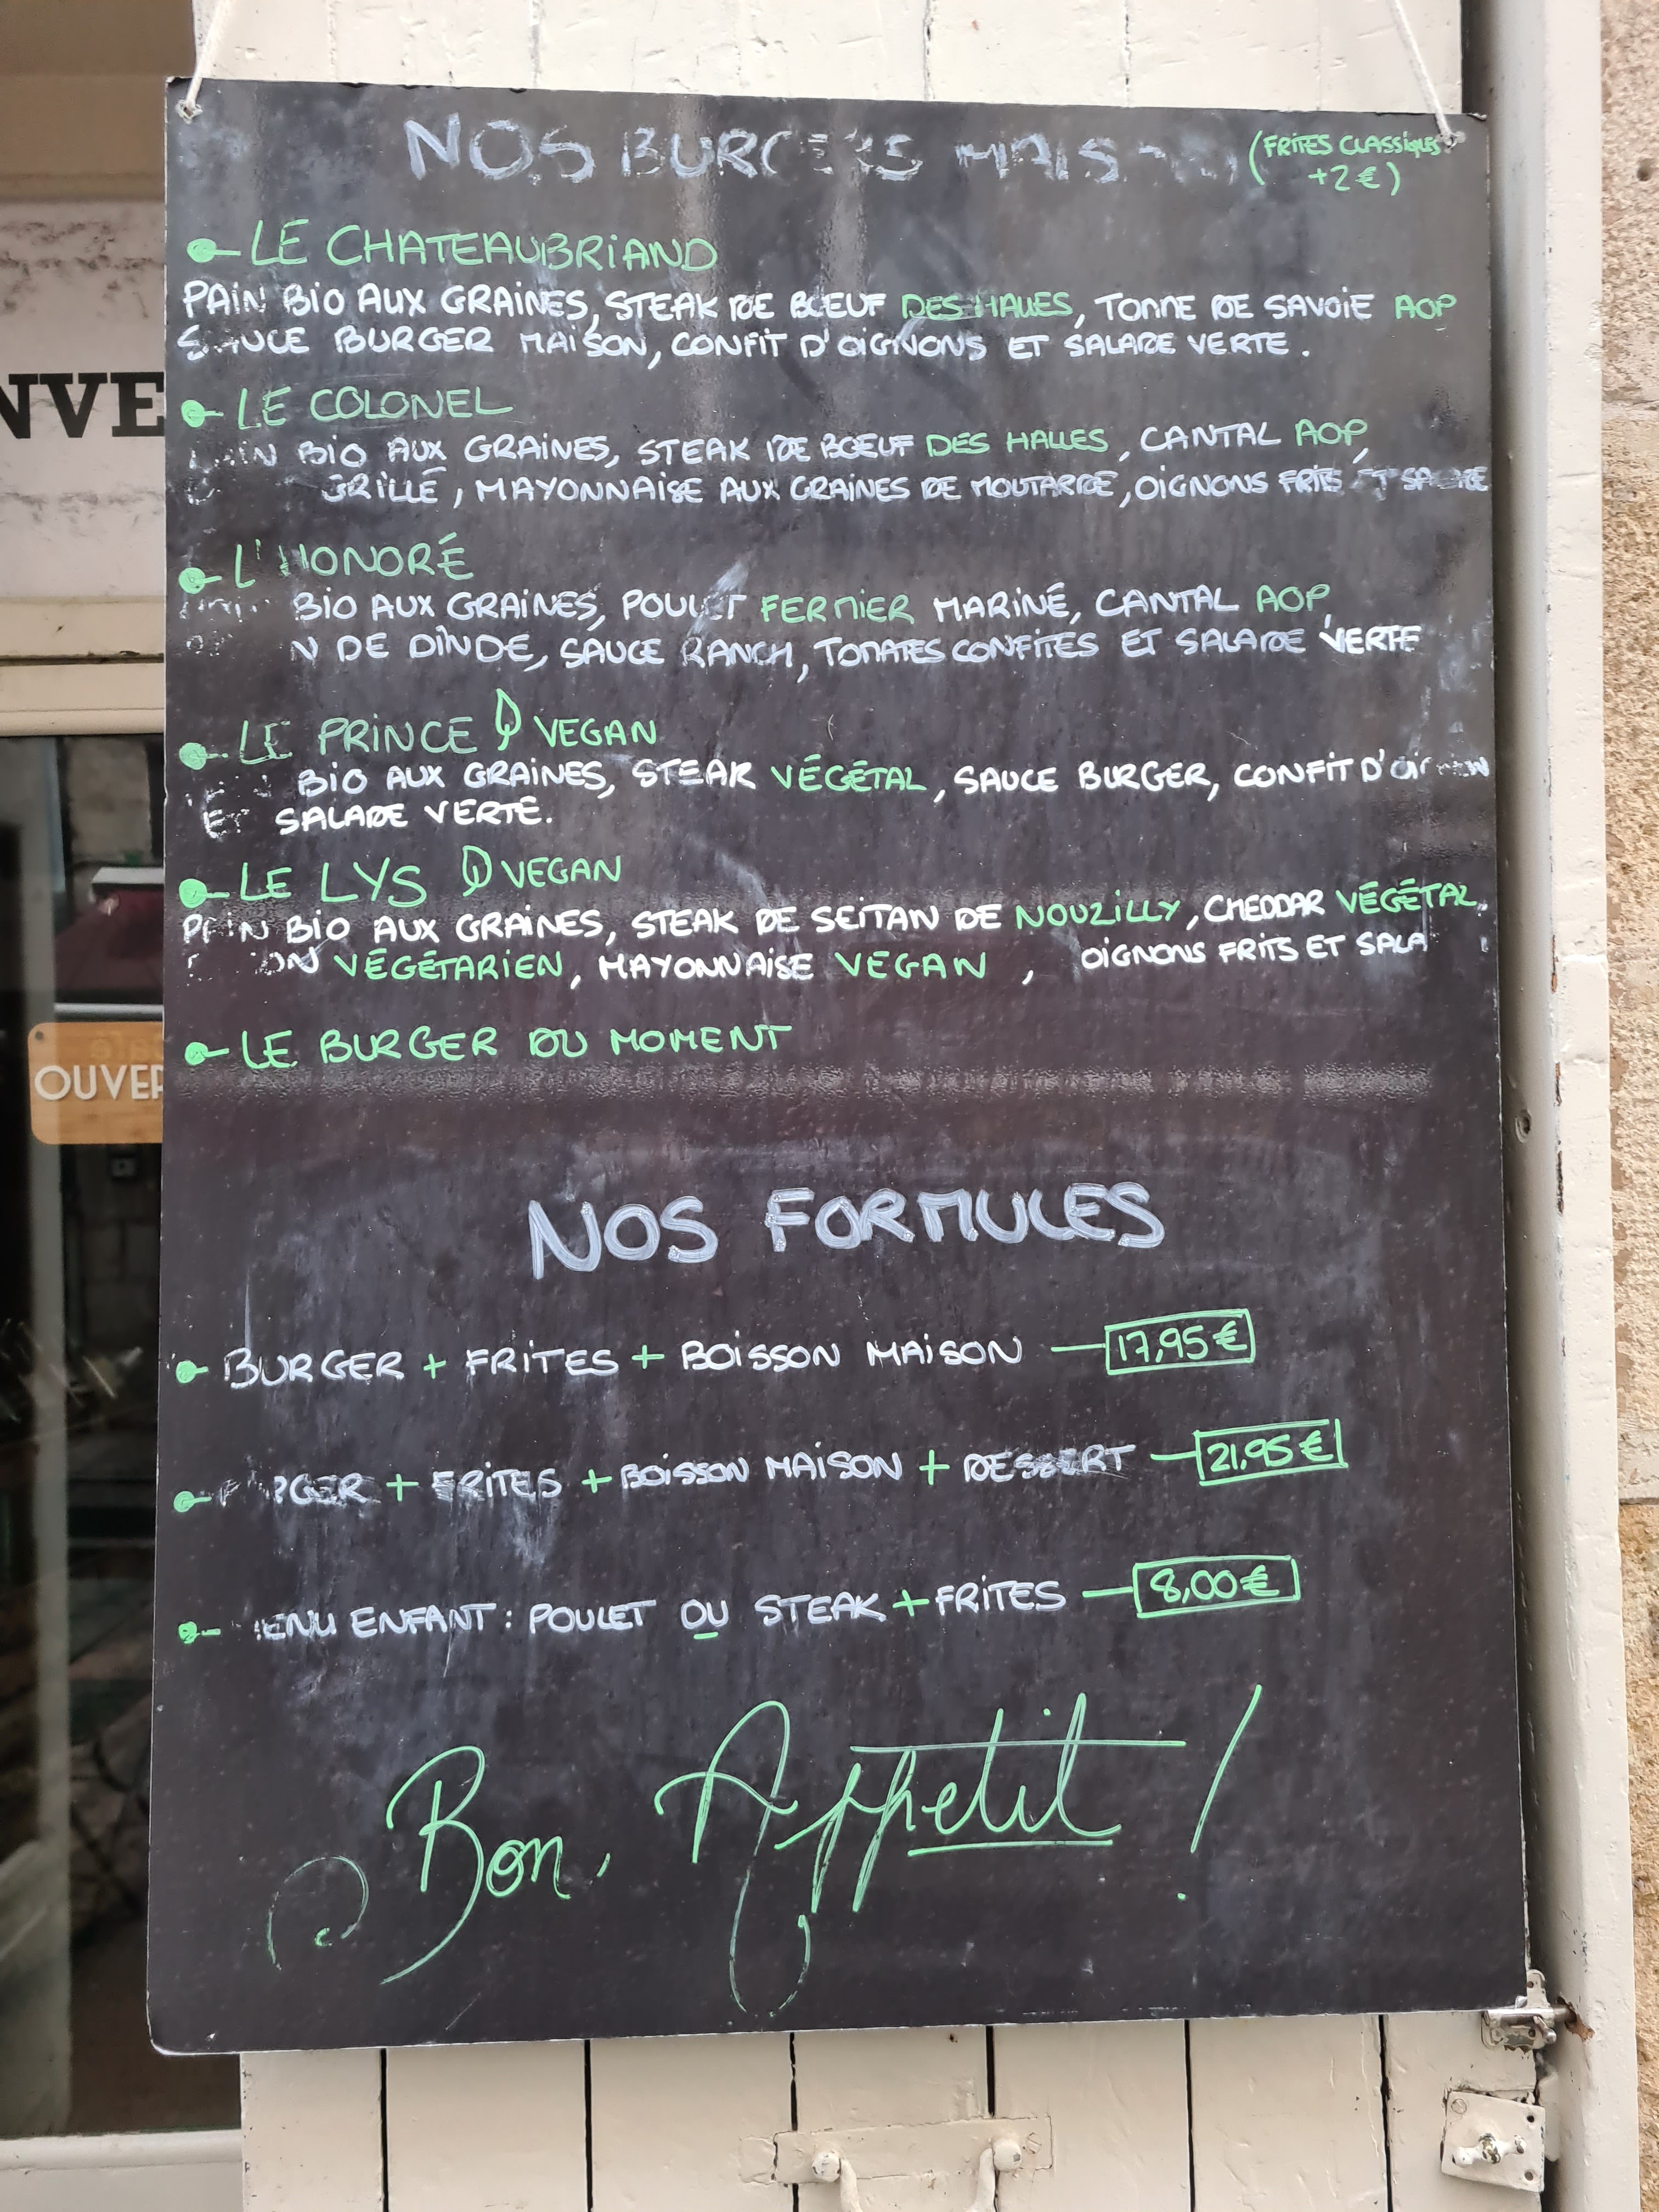 NOS BURGERS MAISON
(FRITES CLASSIQUES
+2€)
LE CHATEAUBRIAND
PAIN BIO AUX GRAINES, STEAK DE BŒUF DES HALLES, TOMME DE SAVOIE AOP
SAUCE BURGER MAISON, CONFIT D'OIGNONS ET SALADE VERTE.
LE COLONEL
PAIN BIO AUX GRAINES, STEAK DE BŒUF DES HALLES, CANTAL AOP,
GRILLÉ, MAYONNAISE AUX GRAINES DE MOUTARDE, OIGNONS FRITS ET SALADE
L'HONORÉ
BIO AUX GRAINES, POULET FERMIER MARINÉ, CANTAL AOP,
DE DINDE, SAUCE RANCH, TOMATES CONFITES ET SALADE VERTE
LE PRINCE VEGAN
BIO AUX GRAINES, STEAK VÉGÉTAL, SAUCE BURGER, CONFIT D'OIGNON
ET SALADE VERTE.
LE LYS VEGAN
PAIN BIO AUX GRAINES, STEAK DE SEITAN DE NOUZILLY, CHEDDAR VÉGÉTAL,
VÉGÉTARIEN, MAYONNAISE VEGAN, OIGNONS FRITS ET SALA
LE BURGER DU MOMENT
NOS FORMULES
BURGER + FRITES + BOISSON MAISON 17,95€
BURGER + FRITES + BOISSON MAISON + DESSERT 21,95€
MENU ENFANT : POULET OU STEAK + FRITES 8,00€
Bon Appetit !
NVE
OUVER